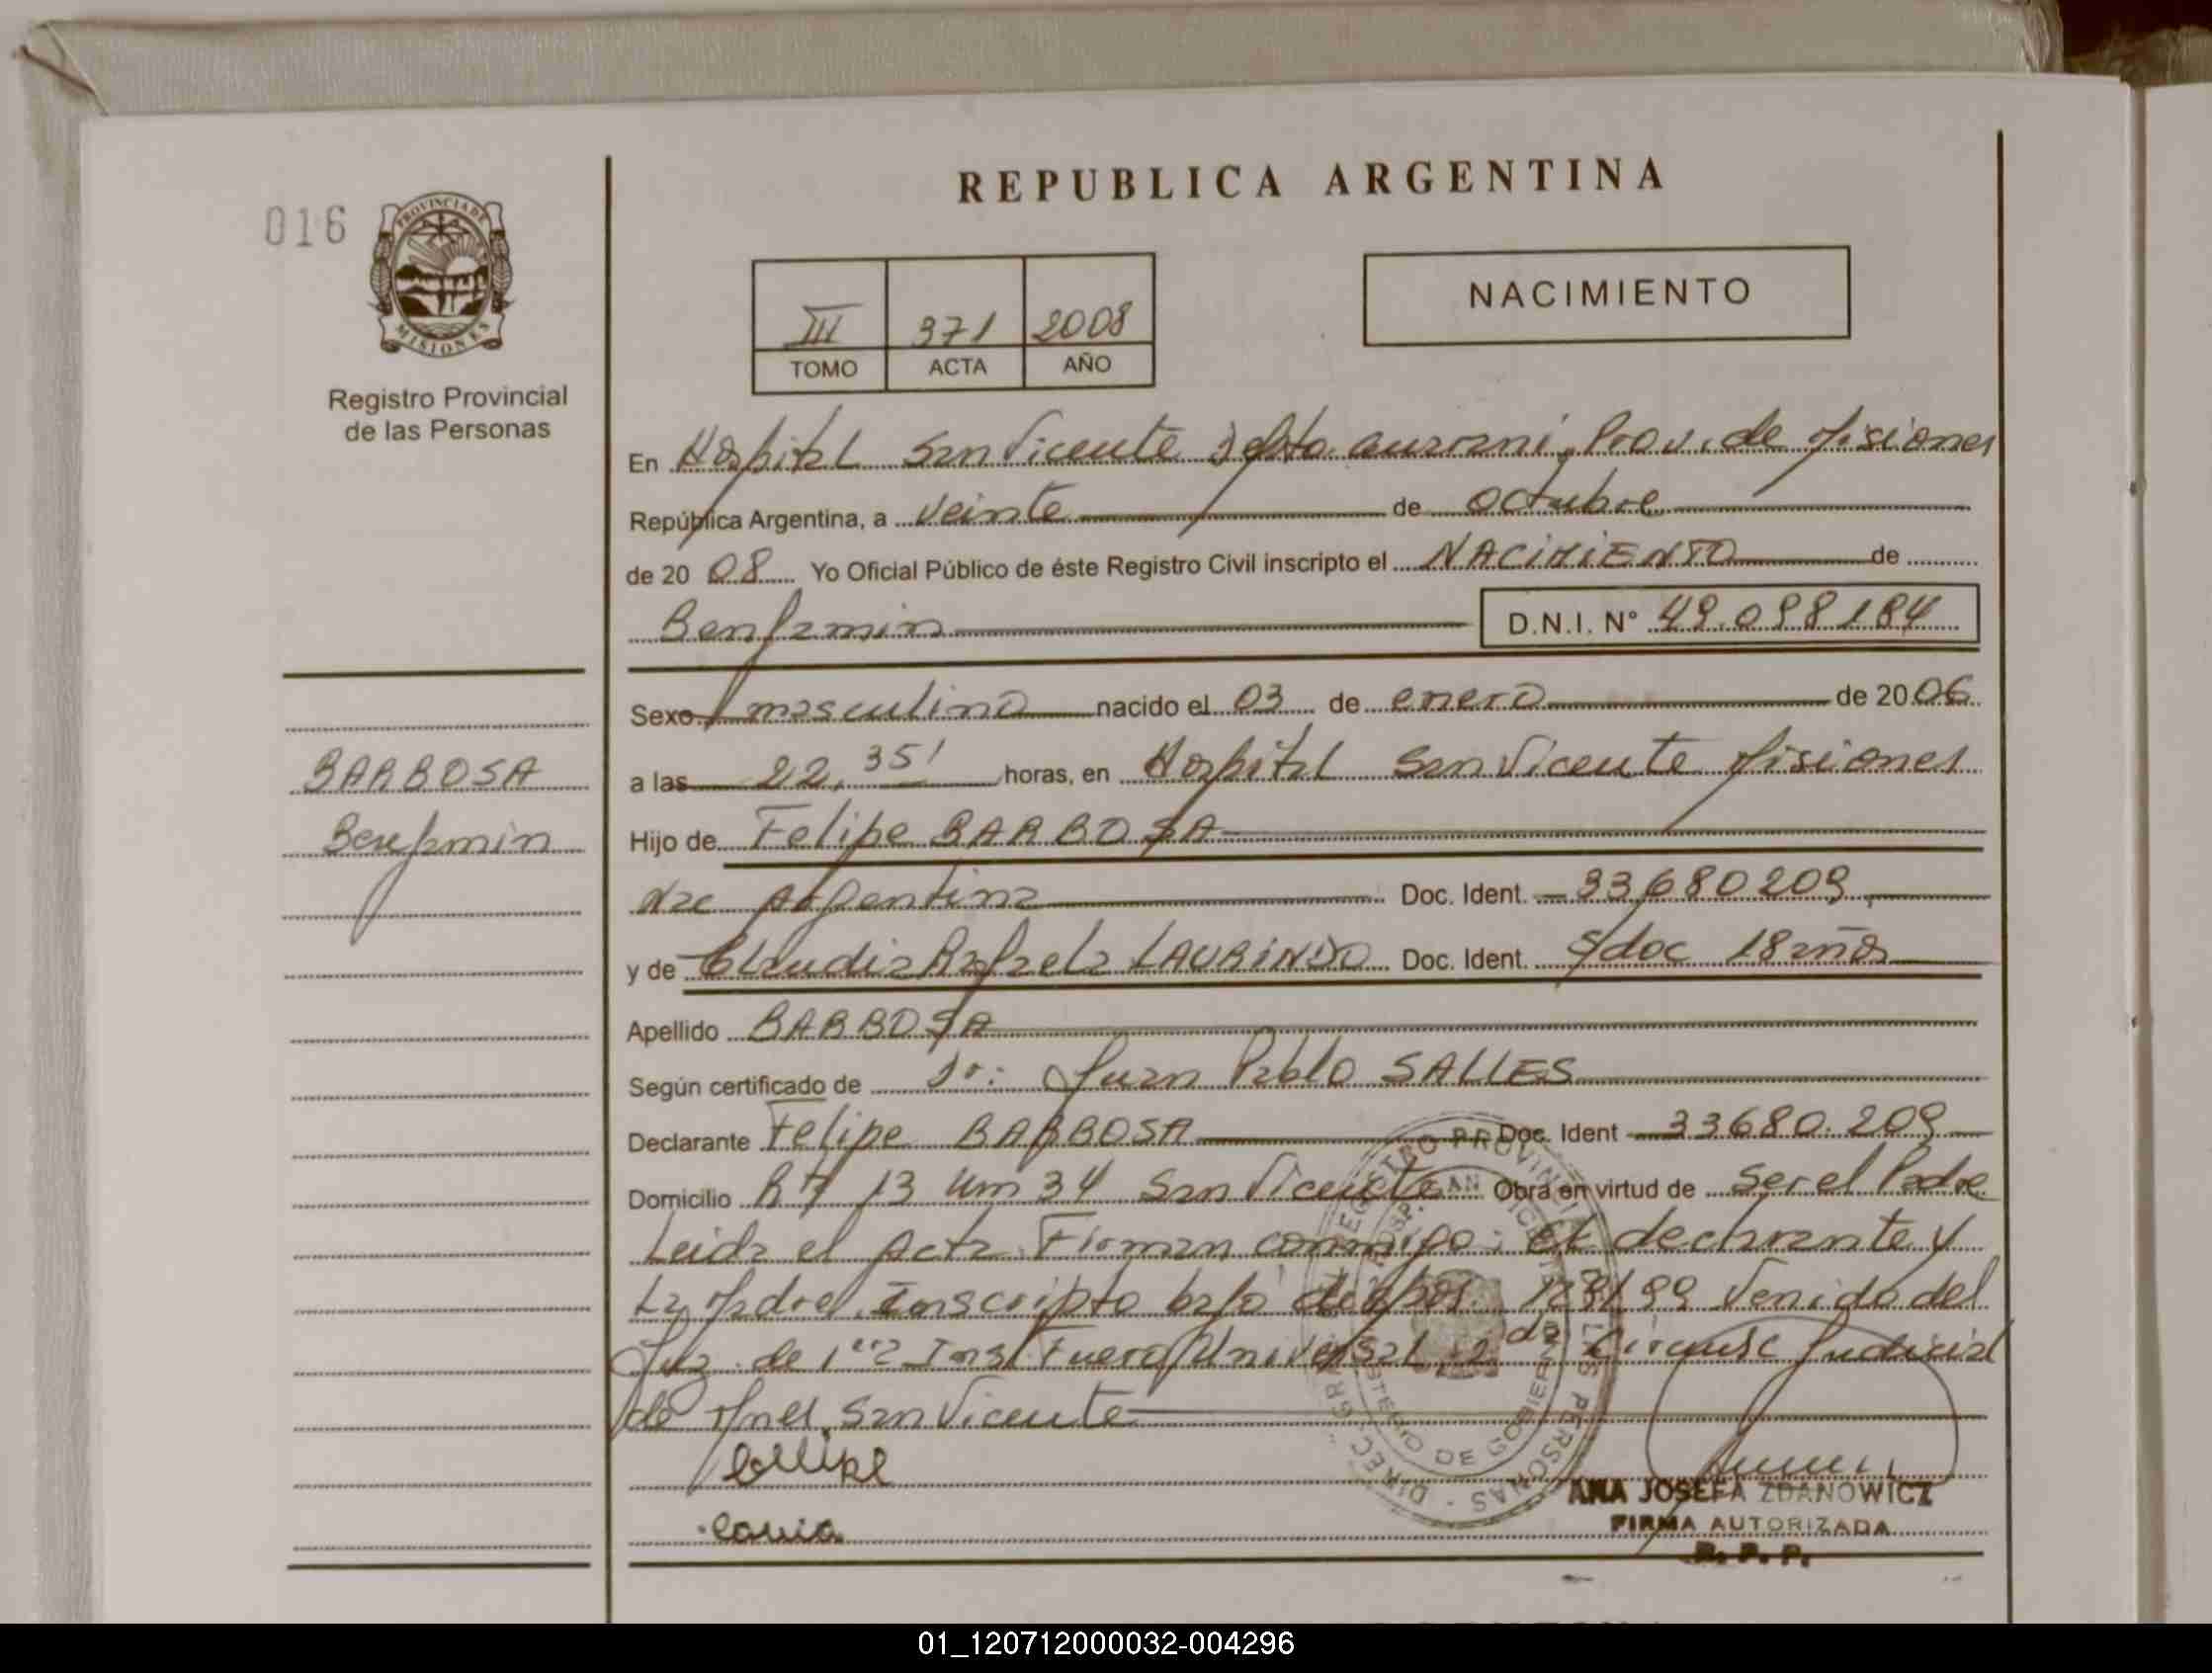 REPUBLICA ARGENTINA
016
PROVINCIA DE
MISIONES
Registro Provincial
de las Personas
III 371 2008
TOMO ACTA AÑO
NACIMIENTO
En Hospital San Vicente Dpto. Guarani, Prov. de Misiones
República Argentina, a veinte de octubre
de 20 08 Yo Oficial Público de éste Registro Civil inscripto el NACIMIENTO de
Benjamin D.N.I. Nº 49.098184
Sexo masculino nacido el 03 de enero de 20 06
BARBOSA
Benjamin
a las 22,35' horas, en Hospital San Vicente Misiones
Hijo de Felipe BARBOSA
Nac Argentina Doc. Ident. 33680209
y de Claudia Rafaela LAURINDO Doc. Ident. S/doc 18 años
Apellido BARBOSA
Según certificado de Dr: Juan Pablo SALLES
Declarante Felipe BARBOSA Doc. Ident 33680.209
Domicilio R 13 Km 34 San Vicente Obra en virtud de ser el Padre
Leida el Acta Firman conmigo: El declarante y
La Madre, Inscripto bajo venido del
Juz. de 1era Inst Fuero Universal 2da Circunsc Judicial
de Mnes, San Vicente
ANA JOSEFA ZDANOWICZ
FIRMA AUTORIZADA
R. P. P.
01_120712000032-004296